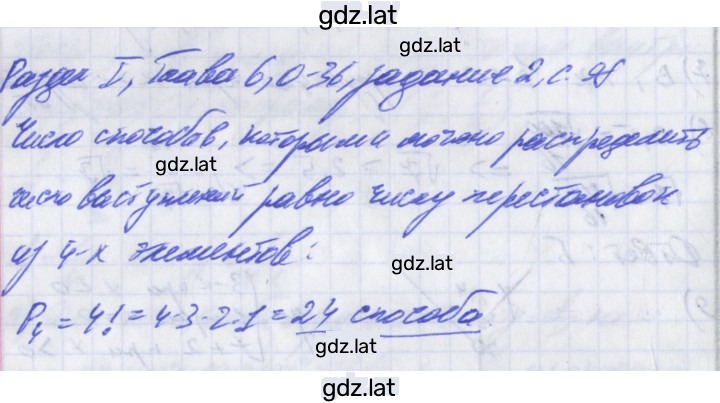 gdz.lat
gdz.lat
Раздел I, Глава 6, 0-36, задание 2, с.
Число способов, которыми можно распределить
gdz.lat
gdz.lat
число выступлений равно числу перестановок
из 4-х элементов:
gdz.lat
P₄ = 4! = 4·3·2·1 = 24 способа
gdz.lat
gdz.lat